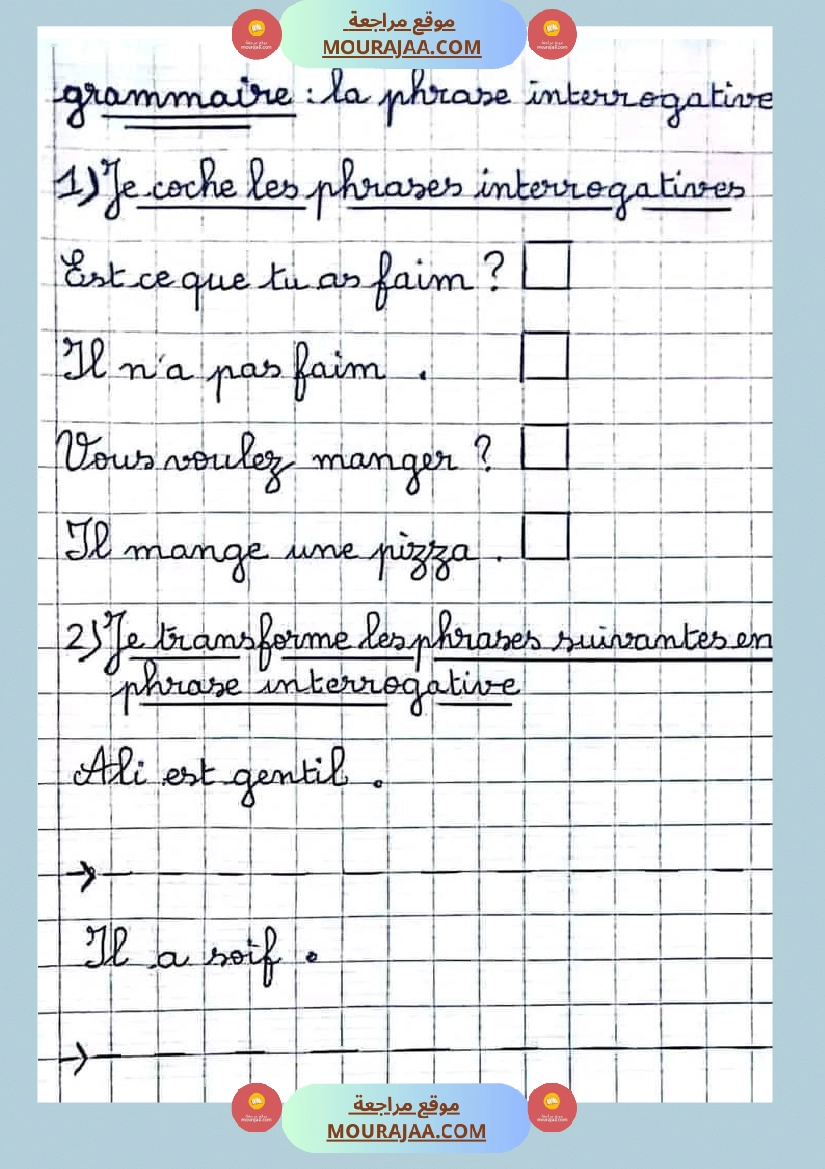 موقع مراجعة
MOURAJAA.COM
grammaire : la phrase interrogative
1) Je coche les phrases interrogatives
Est ce que tu as faim ?
Il n'a pas faim .
Vous voulez manger ?
Il mange une pizza .
2) Je transforme les phrases suivantes en
phrase interrogative
Ali est gentil .
→
Il a soif .
→
موقع مراجعة
MOURAJAA.COM